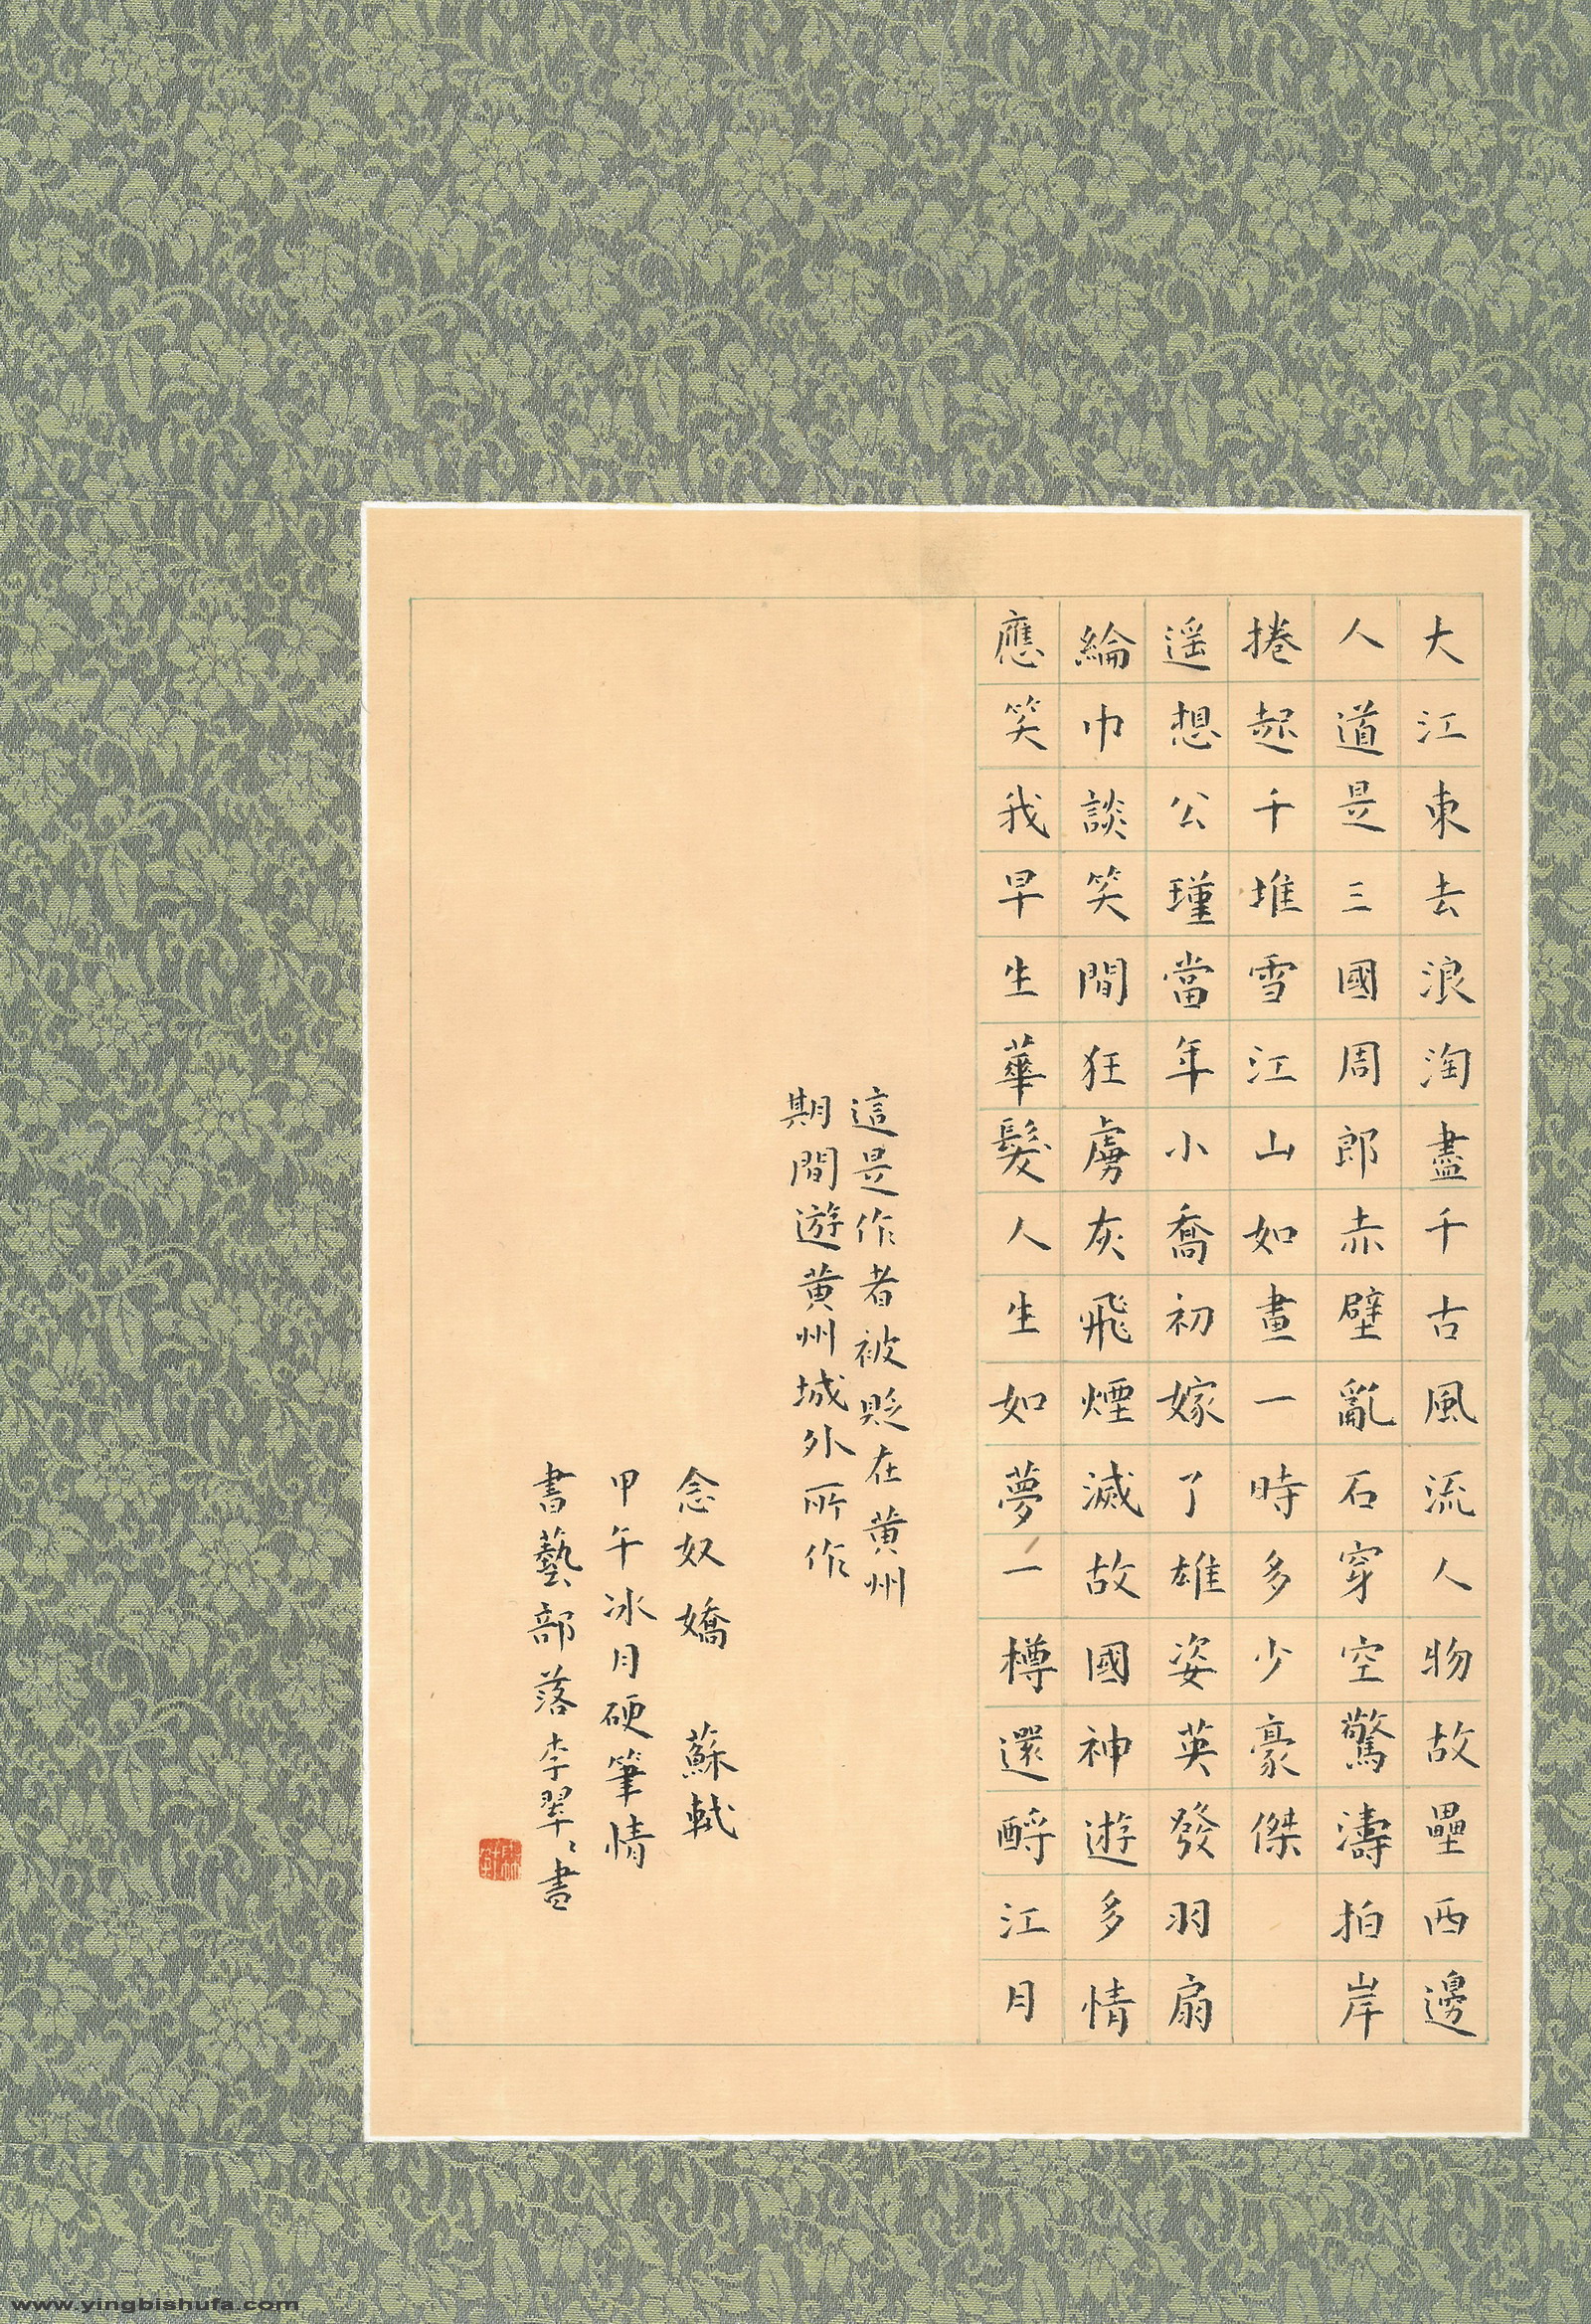 大江東去浪淘盡千古風流人物故壘西邊
人道是三國周郎赤壁亂石穿空驚濤拍岸
捲起千堆雪江山如畫一時多少豪傑
遥想公瑾當年小喬初嫁了雄姿英發羽扇
綸巾談笑間狂虜灰飛煙滅故國神遊多情
應笑我早生華髮人生如夢一樽還酹江月
這是作者被貶在黃州
期間遊黃州城外所作
念奴嬌 蘇軾
甲午冰月硬筆情
書藝部落李翠〻書
www.yingbishufa.com